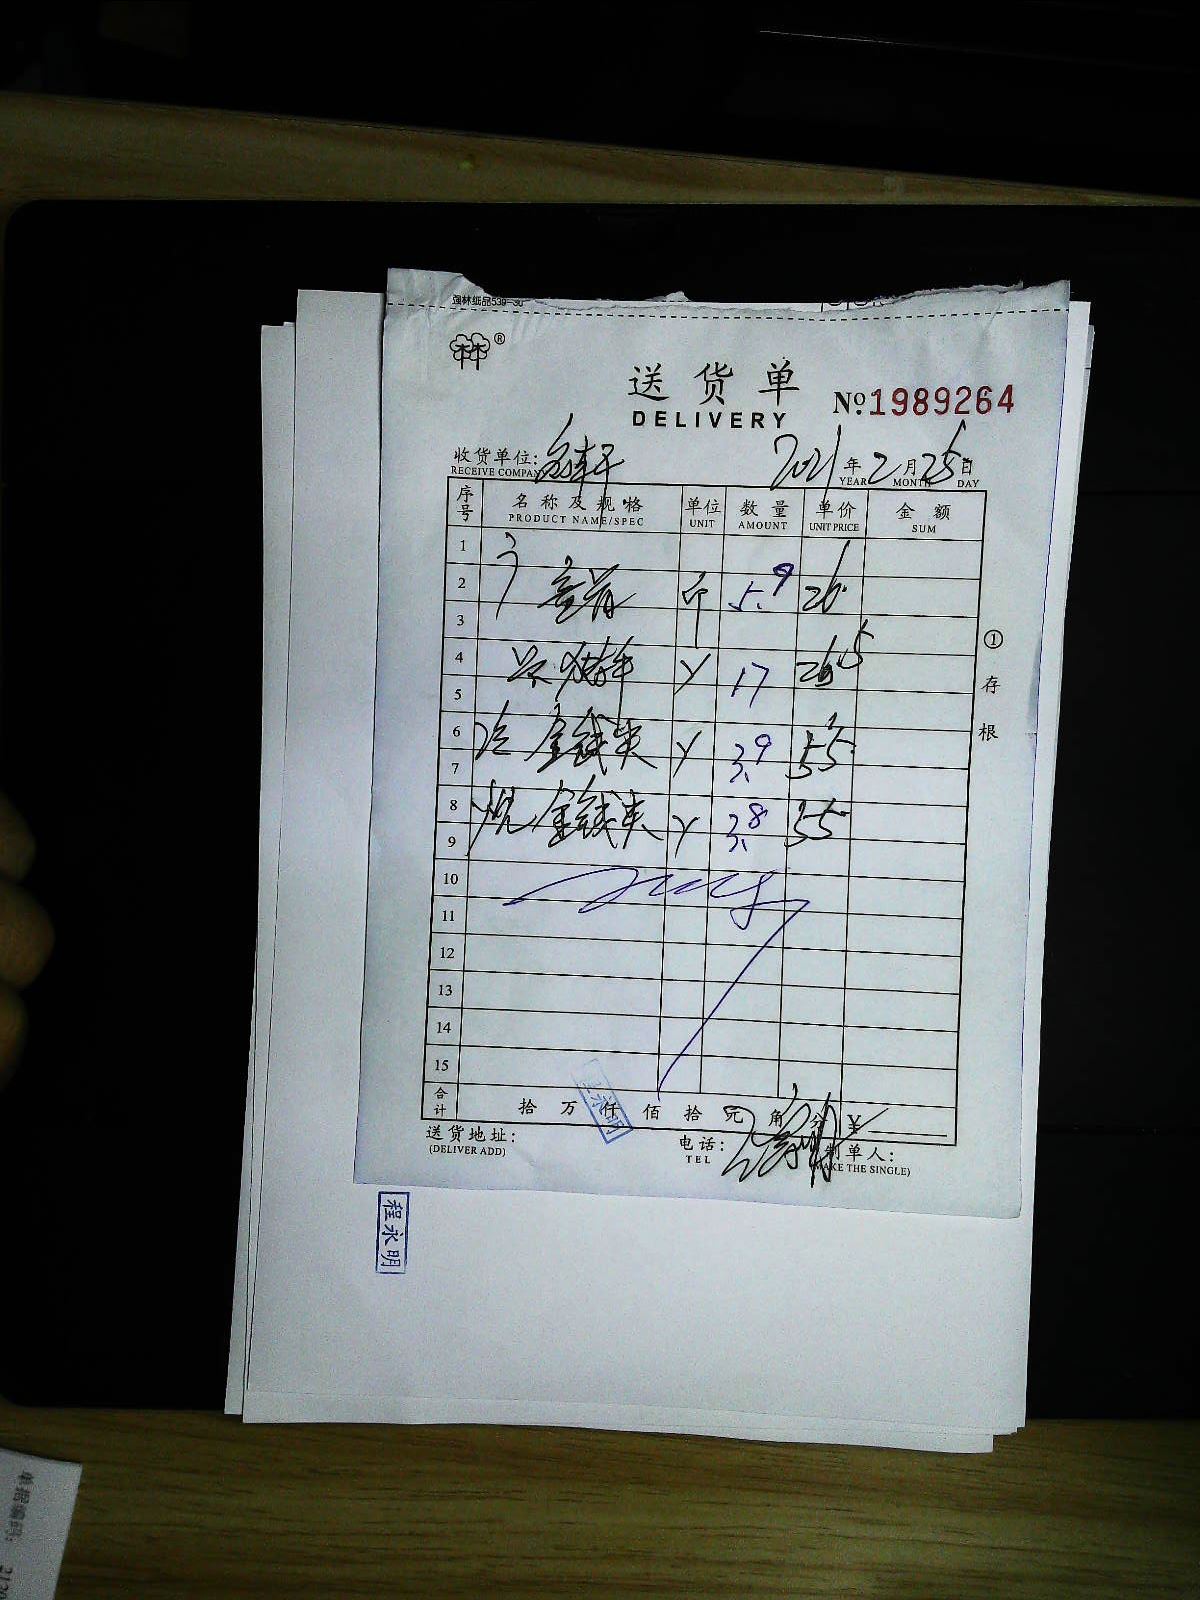 强林纸品539-30
林®
送货单
DELIVERY
No:1989264
收货单位:
RECEIVE COMPANY
2021年2月25日
YEAR MONTH DAY
序号 名称及规格 单位 数量 单价 金额
PRODUCT NAME/SPEC UNIT AMOUNT UNIT PRICE SUM
1
2 斤 5.9 26
3
4 17 26.5
5
6 金钱夹 3.9 55
7
8 金钱夹 3.8 55
9
10
11
12
13
14
15
合计 拾 万 仟 佰 拾 元 角 分 ¥
①存根
送货地址:
(DELIVER ADD)
电话:
TEL
制单人:
(MAKE THE SINGLE)
程永明
单据编码: